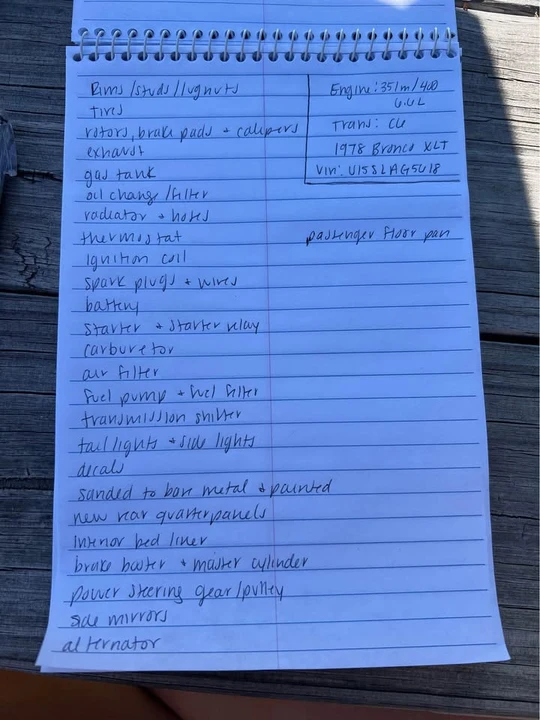 Rims/studs/lugnuts
tires
rotors, brake pads + calipers
exhaust
gas tank
oil change/filter
radiator + hoses
thermostat
ignition coil
spark plugs + wires
battery
starter + starter relay
carburetor
air filter
fuel pump + fuel filter
transmission shifter
tail lights + side lights
decals
sanded to bare metal + painted
new rear quarterpanels
interior bed liner
brake buster + master cylinder
power steering gear/pulley
side mirrors
alternator
Engine: 351m/400
6.6L
Trans: C6
1978 Bronco XLT
Vin: U15SLAG5618
passenger floor pan